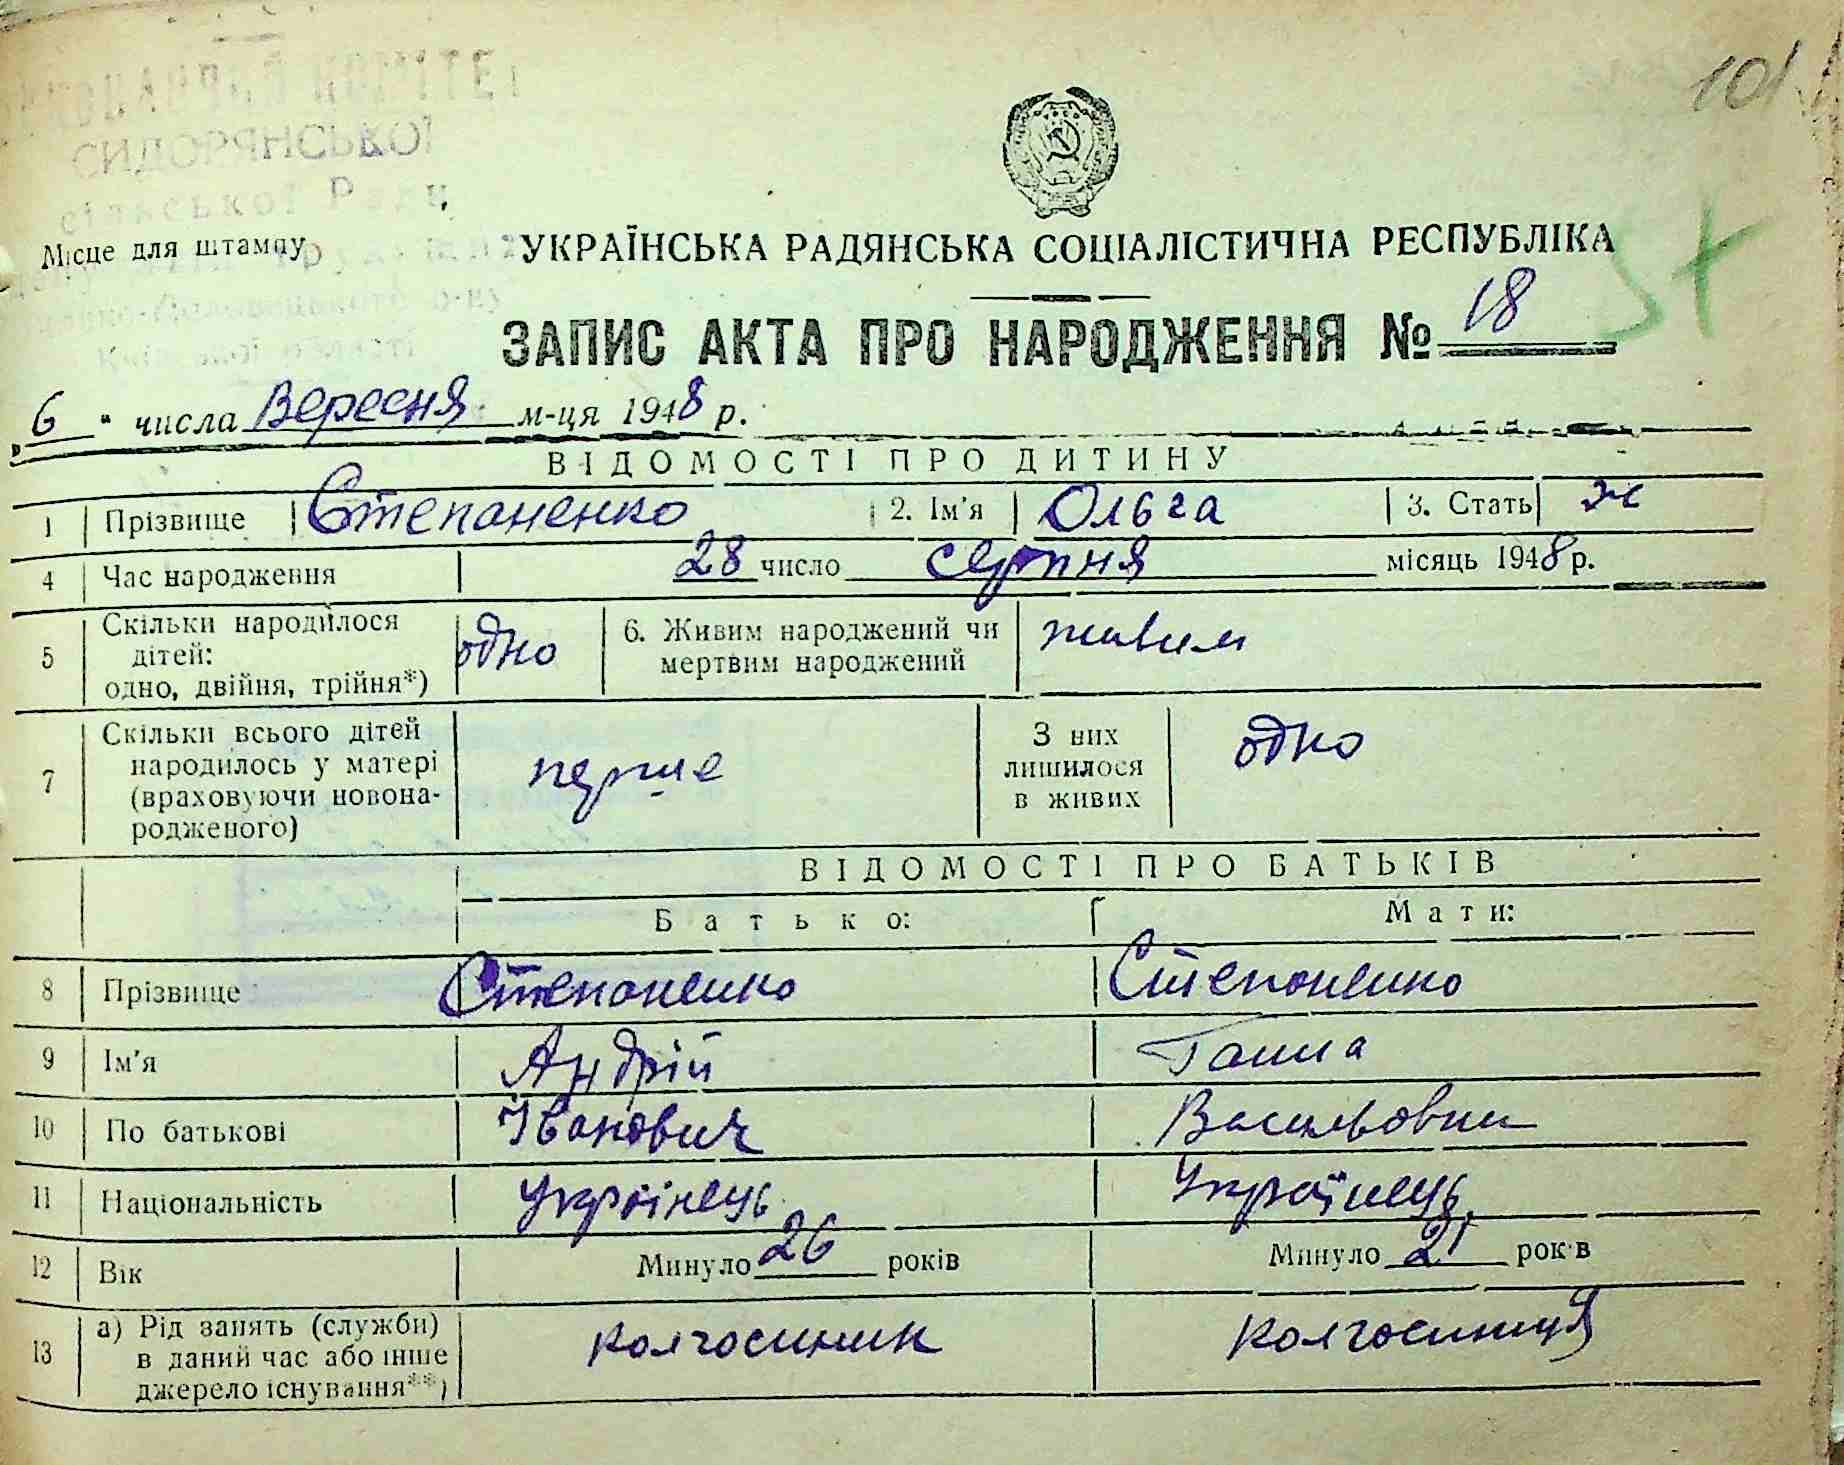 101
КОНАВЧИЙ КОМІТЕТ
СИДОРЯНСЬКОЇ
сільської Ради
Місце для штампу
УКРАЇНСЬКА РАДЯНСЬКА СОЦІАЛІСТИЧНА РЕСПУБЛІКА
ЗАПИС АКТА ПРО НАРОДЖЕННЯ № 18
„6" числа Вересня м-ця 1948 р.
ВІДОМОСТІ ПРО ДИТИНУ
1 Прізвище Степаненко 2. Ім'я Ольга 3. Стать ж
4 Час народження 28 число серпня місяць 1948 р.
5 Скільки народилося дітей: одно, двійня, трійня*) одно 6. Живим народжений чи мертвим народжений живим
7 Скільки всього дітей народилось у матері (враховуючи новонародженого) перше З них лишилося в живих одно
ВІДОМОСТІ ПРО БАТЬКІВ
Батько: Мати:
8 Прізвище Степаненко Степаненко
9 Ім'я Андрій Ганна
10 По батькові Іванович Васильовна
11 Національність Українець Українець
12 Вік Минуло 26 років Минуло 21 рок в
13 а) Рід занять (служби) в даний час або інше джерело існування**) колгоспник колгоспниця